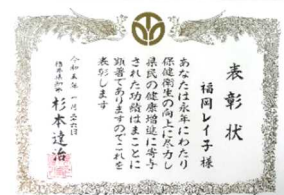 表彰状
福岡レイ子様
あなたは永年にわたり
保健衛生の向上に尽力し
県民の健康増進に寄与
された功績はまことに
顕著でありますのでこれを
表彰します
令和五年一月二十六日
福井県知事 杉本達治